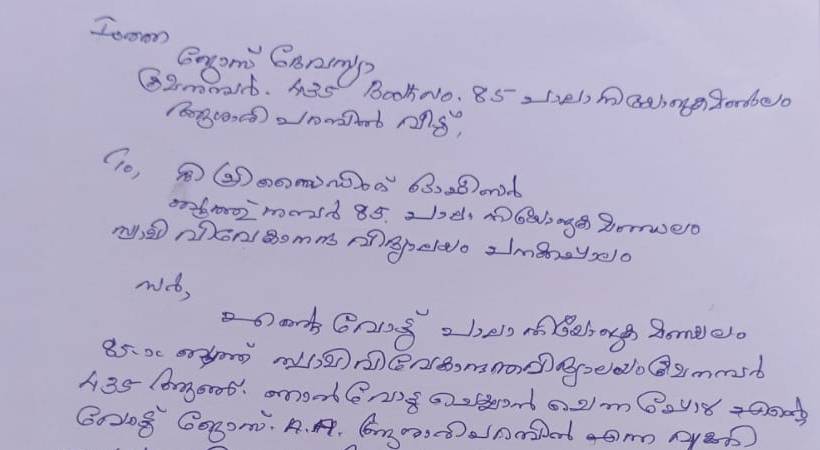 ജോസ് ദേവസ്യാ
ക്രമനമ്പർ. 435 Book No. 85 പാലാ നിയോജകമണ്ഡലം
ആശാരി പറമ്പിൽ വീട്,
To,
ദി പ്രിസൈഡിംഗ് ഓഫീസർ
ബൂത്ത് നമ്പർ 85. പാലാ നിയോജക മണ്ഡലം
സ്വാമി വിവേകാനന്ദ വിദ്യാലയം
സർ,
എന്റെ വോട്ട് പാലാ നിയോജക മണ്ഡലം
85-ാം ബൂത്ത് സ്വാമി വിവേകാനന്ദവിദ്യാലയം ക്രമനമ്പർ
435 ആണ്. ഞാൻ വോട്ടു ചെയ്യാൻ ചെന്നപ്പോൾ എന്റെ
വോട്ട് ജോസ്. A.A. ആശാരിപറമ്പിൽ എന്ന വ്യക്തി